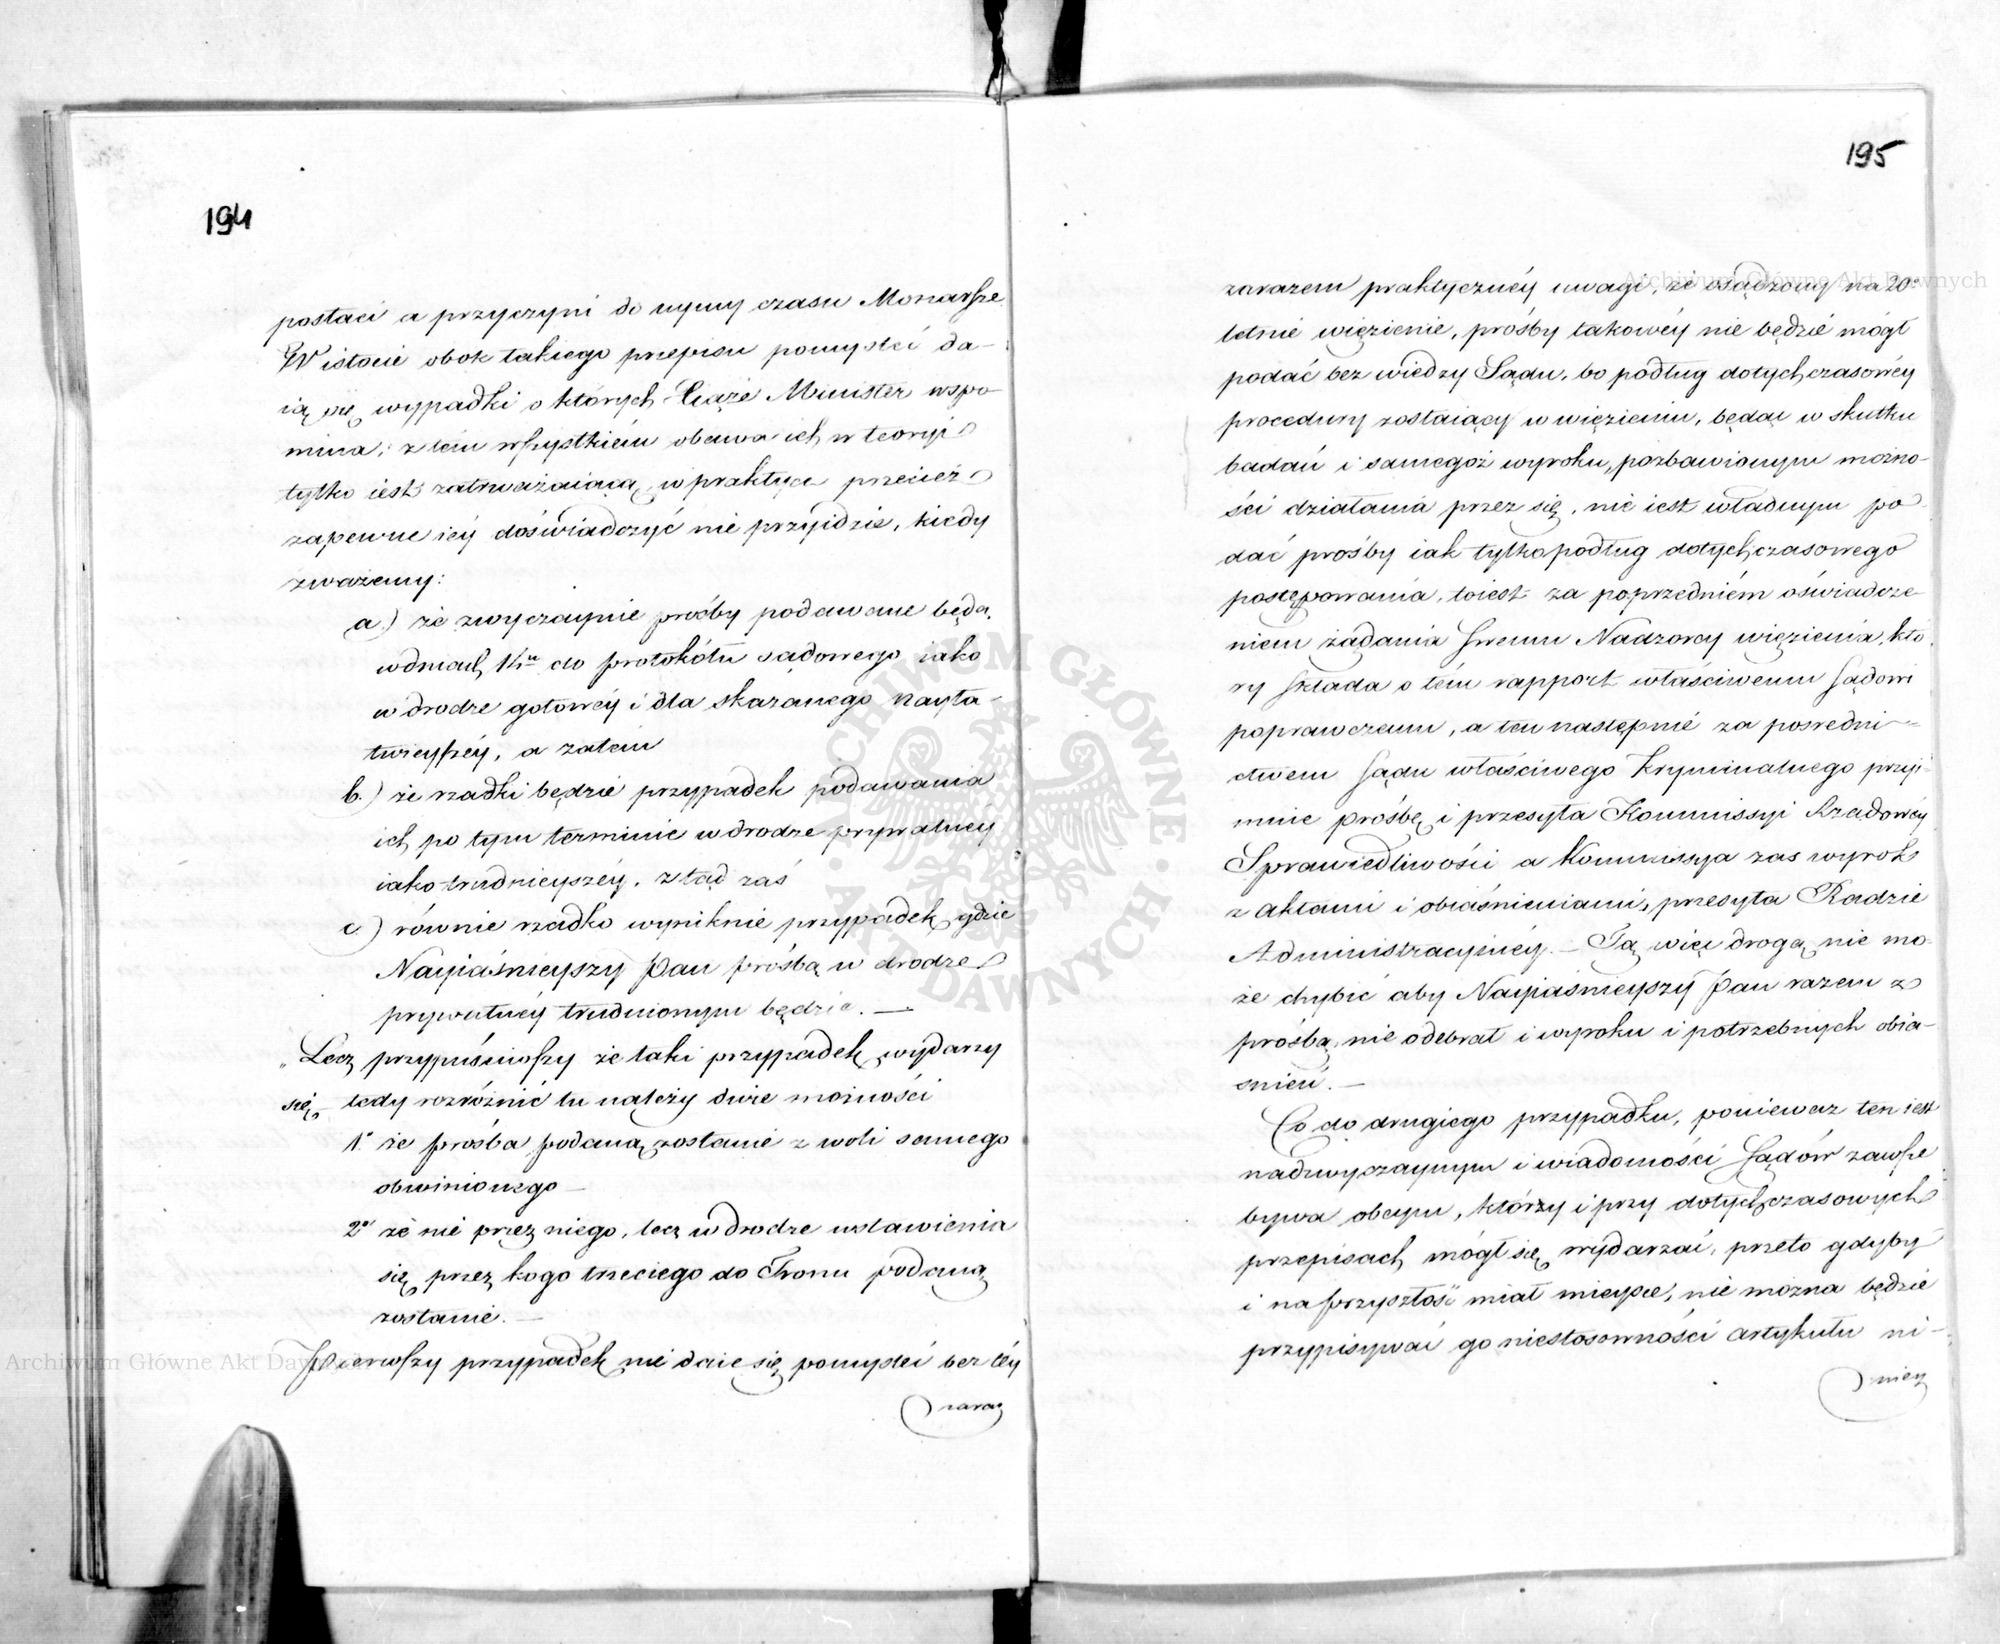 194
postaci a przyczyni do uymy czasu Monarsze.
W istocie obok takiego przepisu pomysleć da-
ią się wypadki o których Xiąże Minister wspo-
mina; z tém wszystkiém obawa ich w teoryi
tylko iest zatrważaiącą, w praktyce przecież
zapewne iéy doświadczyć nie przyidzie, kiedy
zważemy:
a.) że zwyczaynie prośby podawane będą,
w dniach do protokółu sądowego iako
w drodze gotowéy i dla skazanego nayła-
twieyszéy, a zatém
b.) że rzadki będzie przypadek podawania
ich po tym terminie w drodze prywatnéy
iako trudnieyszéy, ztąd zaś
c.) równie rzadko wyniknie przypadek gdzie
Nayiaśnieyszy Pan prośbą w drodze
prywatnéy trudnionym będzie. —
„Lecz przypuściwszy że taki przypadek wydarzy
się, tedy rozróżnić tu należy dwie możności
1° że prośba podaną zostanie z woli samego
obwinionego —
2° że nie przez niego, lecz w drodze wstawienia
się przez kogo trzeciego do Tronu podaną
zostanie. —
Pierwszy przypadek nie daie się pomysleć bez téy
zaraz
195
zarazem praktycznéy uwagi, że osądzony na 20°
letnie więzienie, prośby takowéy nie będzie mógł
podać bez wiedzy Sądu, bo podług dotychczasowéy
procedury zostaiący w więzieniu, będąc w skutku
badań i samegoż wyroku, pozbawionym możno-
ści działania przez się, nie iest władnym po-
dać prośby iak tylko podług dotychczasowego
postępowania, toiest za poprzedniém oświadcze-
niem żądania swemu Nadzorcy więzienia, któ-
ry składa o tém rapport właściwemu Sądowi
poprawczemu, a ten następnie za pośredni-
ctwem Sądu właściwego Kryminalnego przyi-
muie prośbę i przesyła Kommissyi Rządowéy
Sprawiedliwości a Kommissya zas wyrok
z aktami i obiaśnieniami, przesyła Radzie
Administracyinéy. — Tą więc drogą nie mo-
że chybić aby Nayiaśnieyszy Pan razem z
prośbą, nie odebrał i wyroku i potrzebnych obia-
śnień. —
Co do drugiego przypadku, ponieważ ten iest
nadzwyczaynym i wiadomości Sądów zawsze
bywa obcym, który i przy dotychczasowych
przepisach mógł się wydarzać, przeto gdyby
i na przyszłość miał mieysce, nie można będzie
przypisywać go niestosowności artykułu ni-
niey
Archiwum Główne Akt Dawnych
Archiwum Główne Akt Dawnych
ARCHIWUM GŁÓWNE AKT DAWNYCH